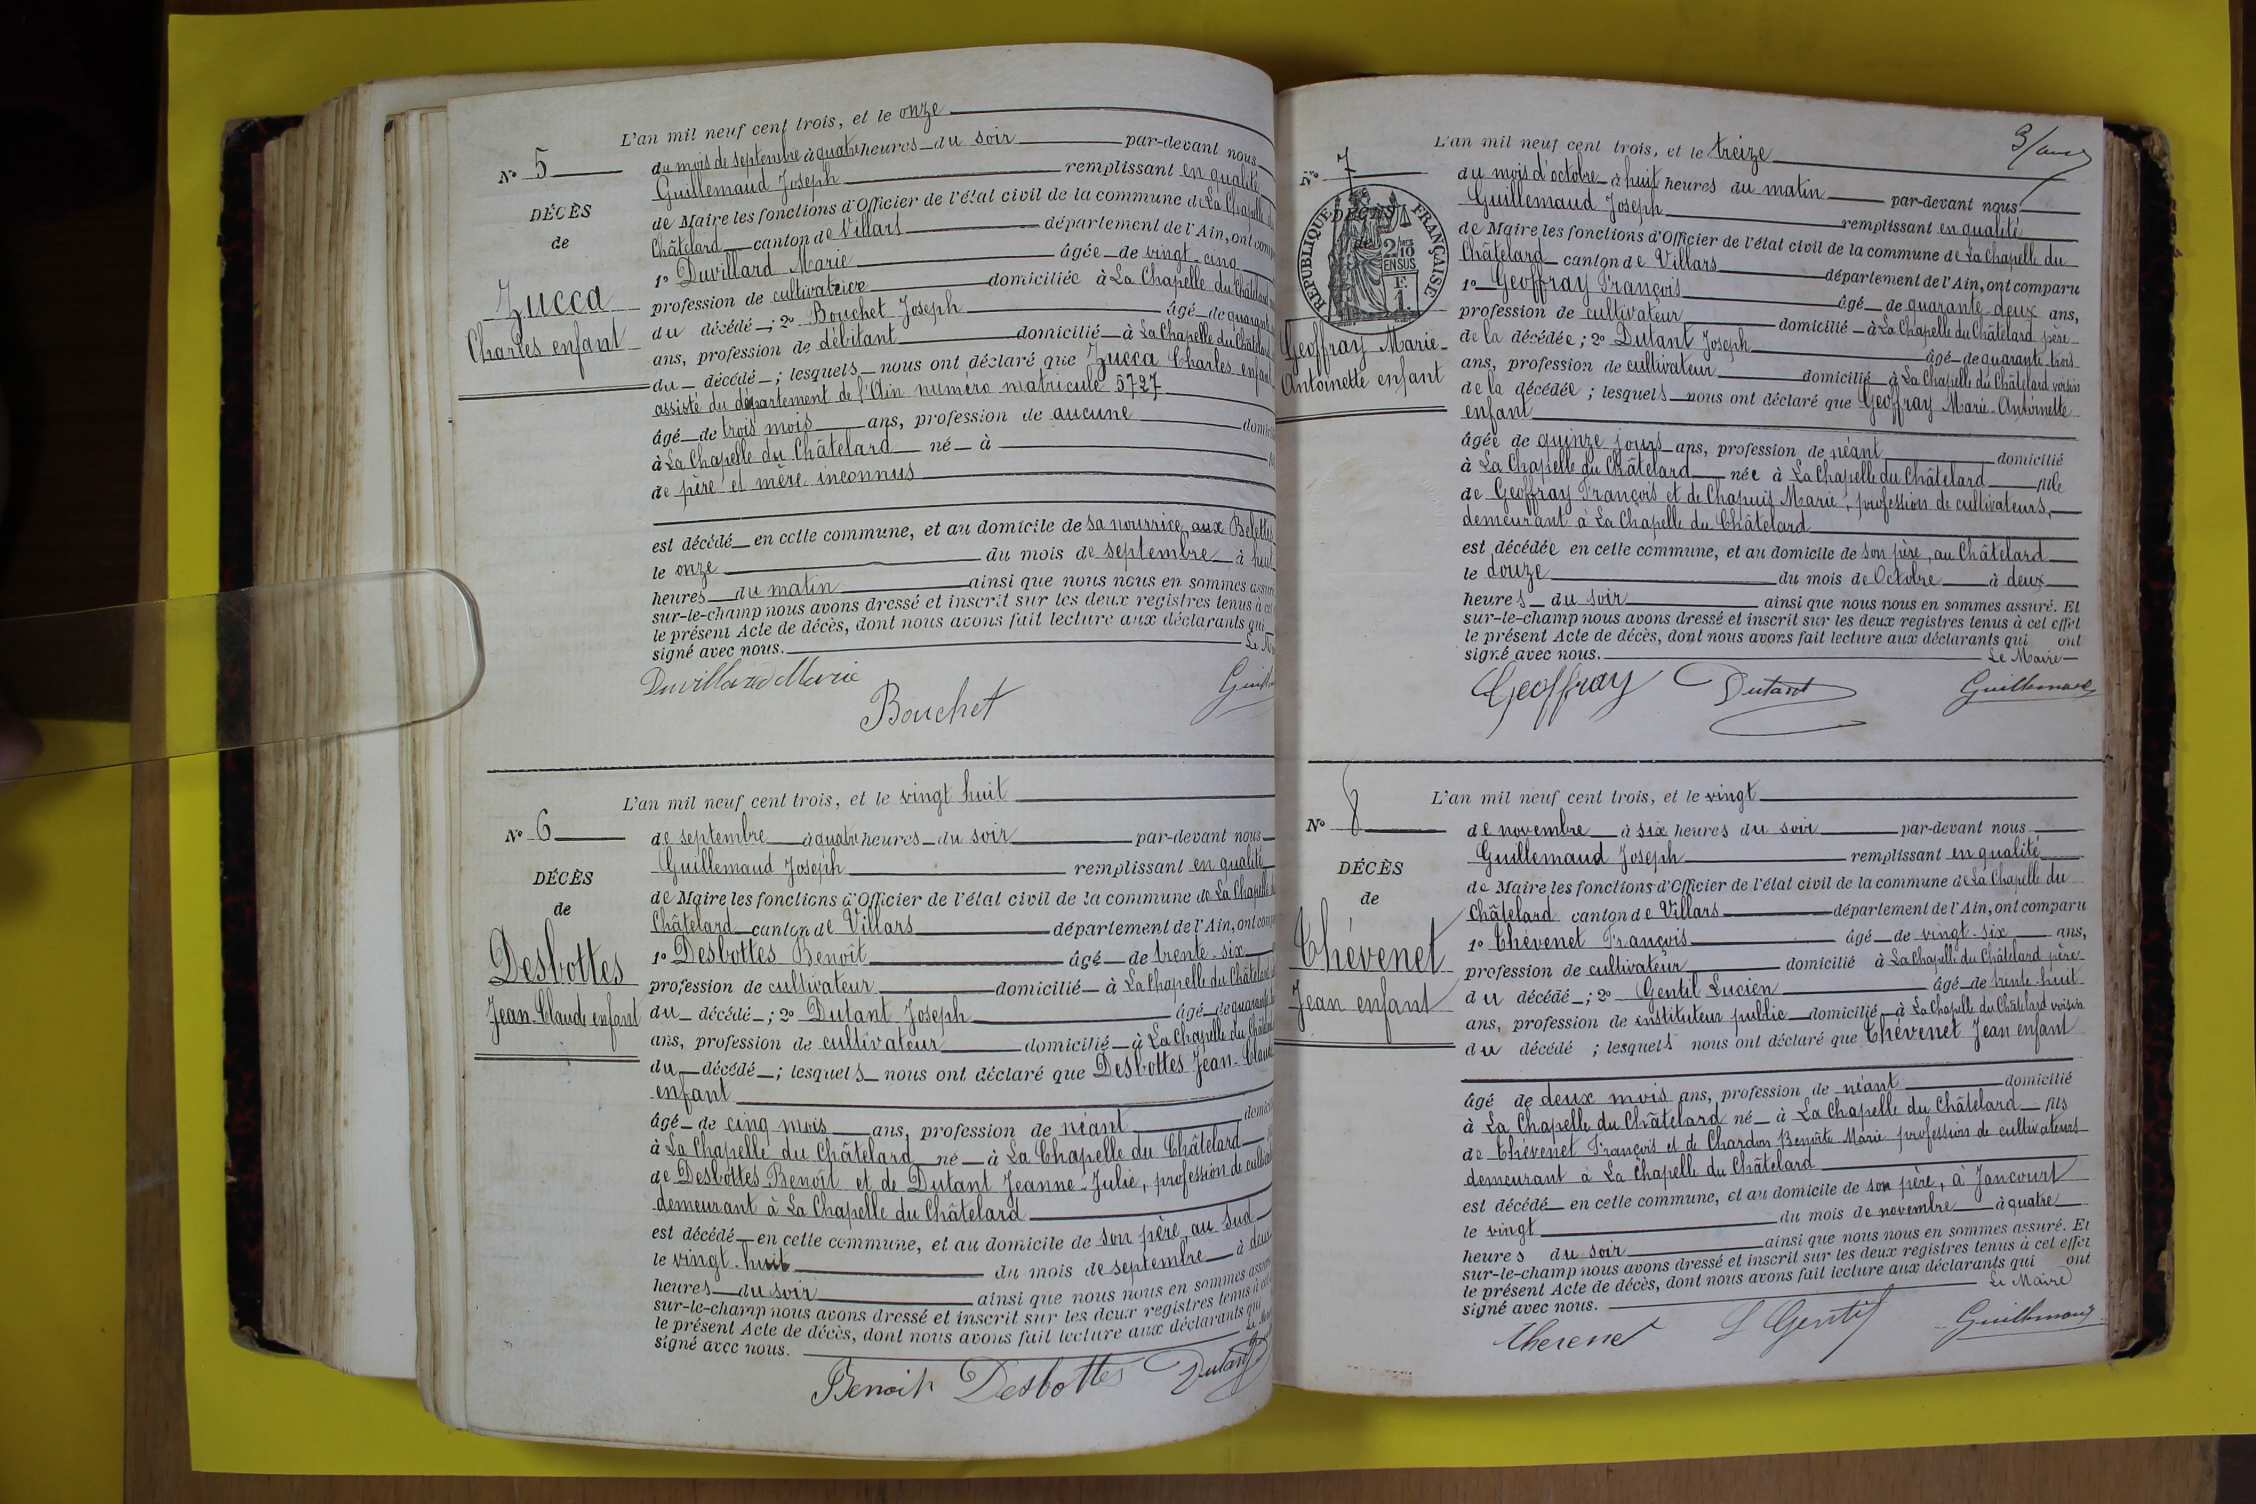 L'an mil neuf cent trois, et le onze
N° 5
du mois de septembre à quatre heures du soir par-devant nous
Guillemaud Joseph remplissant en qualité
DÉCÈS
de Maire les fonctions d'Officier de l'état civil de la commune de La Chapelle
de
Châtelard canton de Villars département de l'Ain, ont
1° Duvillard Marie âgée de vingt-cinq
Zucca
profession de cultivatrice domiciliée à La Chapelle du Châtelard
Charles enfant
du décédé ; 2° Bouchet Joseph âgé de
ans, profession de débitant domicilié à La Chapelle du Châtelard
du décédé ; lesquels nous ont déclaré que Zucca Charles enfant
assisté du département de l'Ain numéro matricule 5727
âgé de trois mois ans, profession de aucune
à La Chapelle du Châtelard né à
de père et mère inconnus
est décédé en cette commune, et au domicile de sa nourrice, aux Belettes
le onze du mois de septembre à
heures du matin ainsi que nous nous en sommes
sur-le-champ nous avons dressé et inscrit sur les deux registres tenus à
le présent Acte de décès, dont nous avons fait lecture aux déclarants qui
signé avec nous. Le
Duvillard Marie
Bouchet
L'an mil neuf cent trois, et le vingt huit
N° 6
de septembre à quatre heures du soir par-devant nous
Guillemaud Joseph remplissant en qualité
DÉCÈS
de Maire les fonctions d'Officier de l'état civil de la commune de La Chapelle
de
Châtelard canton de Villars département de l'Ain, ont
Desbottes
1° Desbottes Benoît âgé de trente-six
profession de cultivateur domicilié à La Chapelle du Châtelard
Jean-Claude enfant
du décédé ; 2° Dutant Joseph âgé de
ans, profession de cultivateur domicilié à La Chapelle du
du décédé ; lesquels nous ont déclaré que Desbottes Jean-Claude
enfant
âgé de cinq mois ans, profession de néant
à La Chapelle du Châtelard né à La Chapelle du Châtelard
de Desbottes Benoît et de Dutant Jeanne-Julie, profession de
demeurant à La Chapelle du Châtelard
est décédé en cette commune, et au domicile de son père, au Sud
le vingt-huit du mois de septembre à deux
heures du soir ainsi que nous nous en sommes
sur-le-champ nous avons dressé et inscrit sur les deux registres tenus à
le présent Acte de décès, dont nous avons fait lecture aux déclarants qui
signé avec nous.
Benoit Desbottes Dutant
3/
L'an mil neuf cent trois, et le treize
N° 7
du mois d'octobre à huit heures du matin par-devant nous
Guillemaud Joseph remplissant en qualité
DÉCÈS
de
RÉPUBLIQUE FRANÇAISE
2/10 EN SUS
F. 1
de Maire les fonctions d'Officier de l'état civil de la commune de La Chapelle du
Châtelard canton de Villars département de l'Ain, ont comparu
1° Geoffray François âgé de quarante-deux ans,
profession de cultivateur domicilié à La Chapelle du Châtelard père
Geoffray Marie-
de la décédée ; 2° Dutant Joseph âgé de quarante-trois
Antoinette enfant
ans, profession de cultivateur domicilié à La Chapelle du Châtelard voisin
de la décédée ; lesquels nous ont déclaré que Geoffray Marie-Antoinette
enfant
âgée de quinze jours ans, profession de néant domicilié
à La Chapelle du Châtelard née à La Chapelle du Châtelard fille
de Geoffray François et de Chapuis Marie, profession de cultivateurs,
demeurant à La Chapelle du Châtelard
est décédée en cette commune, et au domicile de son père, au Châtelard
le douze du mois de Octobre à deux
heures du soir ainsi que nous nous en sommes assuré. Et
sur-le-champ nous avons dressé et inscrit sur les deux registres tenus à cet effet
le présent Acte de décès, dont nous avons fait lecture aux déclarants qui ont
signé avec nous. Le Maire
Geoffray Dutant Guillemaud
L'an mil neuf cent trois, et le vingt
N° 8
de novembre à six heures du soir par-devant nous
Guillemaud Joseph remplissant en qualité
DÉCÈS
de Maire les fonctions d'Officier de l'état civil de la commune de La Chapelle du
de
Châtelard canton de Villars département de l'Ain, ont comparu
Thévenet
1° Thévenet François âgé de vingt-six ans,
profession de cultivateur domicilié à La Chapelle du Châtelard père
Jean enfant
du décédé ; 2° Gentil Lucien âgé de trente-huit
ans, profession de instituteur public domicilié à La Chapelle du Châtelard voisin
du décédé ; lesquels nous ont déclaré que Thévenet Jean enfant
âgé de deux mois ans, profession de néant domicilié
à La Chapelle du Châtelard né à La Chapelle du Châtelard fils
de Thévenet François et de Chardon Benoîte Marie profession de cultivateurs
demeurant à La Chapelle du Châtelard
est décédé en cette commune, et au domicile de son père, à Jancourt
le vingt du mois de novembre à quatre
heures du soir ainsi que nous nous en sommes assuré. Et
sur-le-champ nous avons dressé et inscrit sur les deux registres tenus à cet effet
le présent Acte de décès, dont nous avons fait lecture aux déclarants qui ont
signé avec nous. Le Maire
Thevenet L Gentil Guillemaud